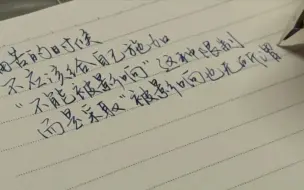 痛苦的时候
不应该给自己施加
“不能被影响”这种限制
而是采取“被影响也无所谓